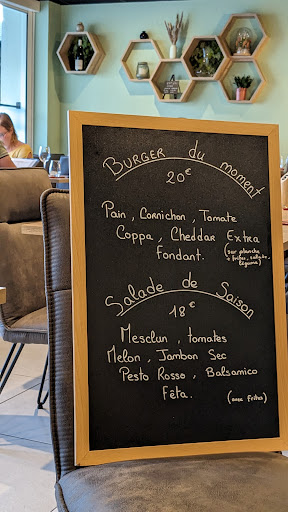 BURGER du moment
20€
Pain, Cornichon, Tomate
Coppa, Cheddar Extra
Fondant.
(sur planche
+ frites, salade,
légume)
Salade de Saison
18€
Mesclun, tomates
Melon, Jambon Sec
Pesto Rosso, Balsamico
Fêta.
(avec frites)